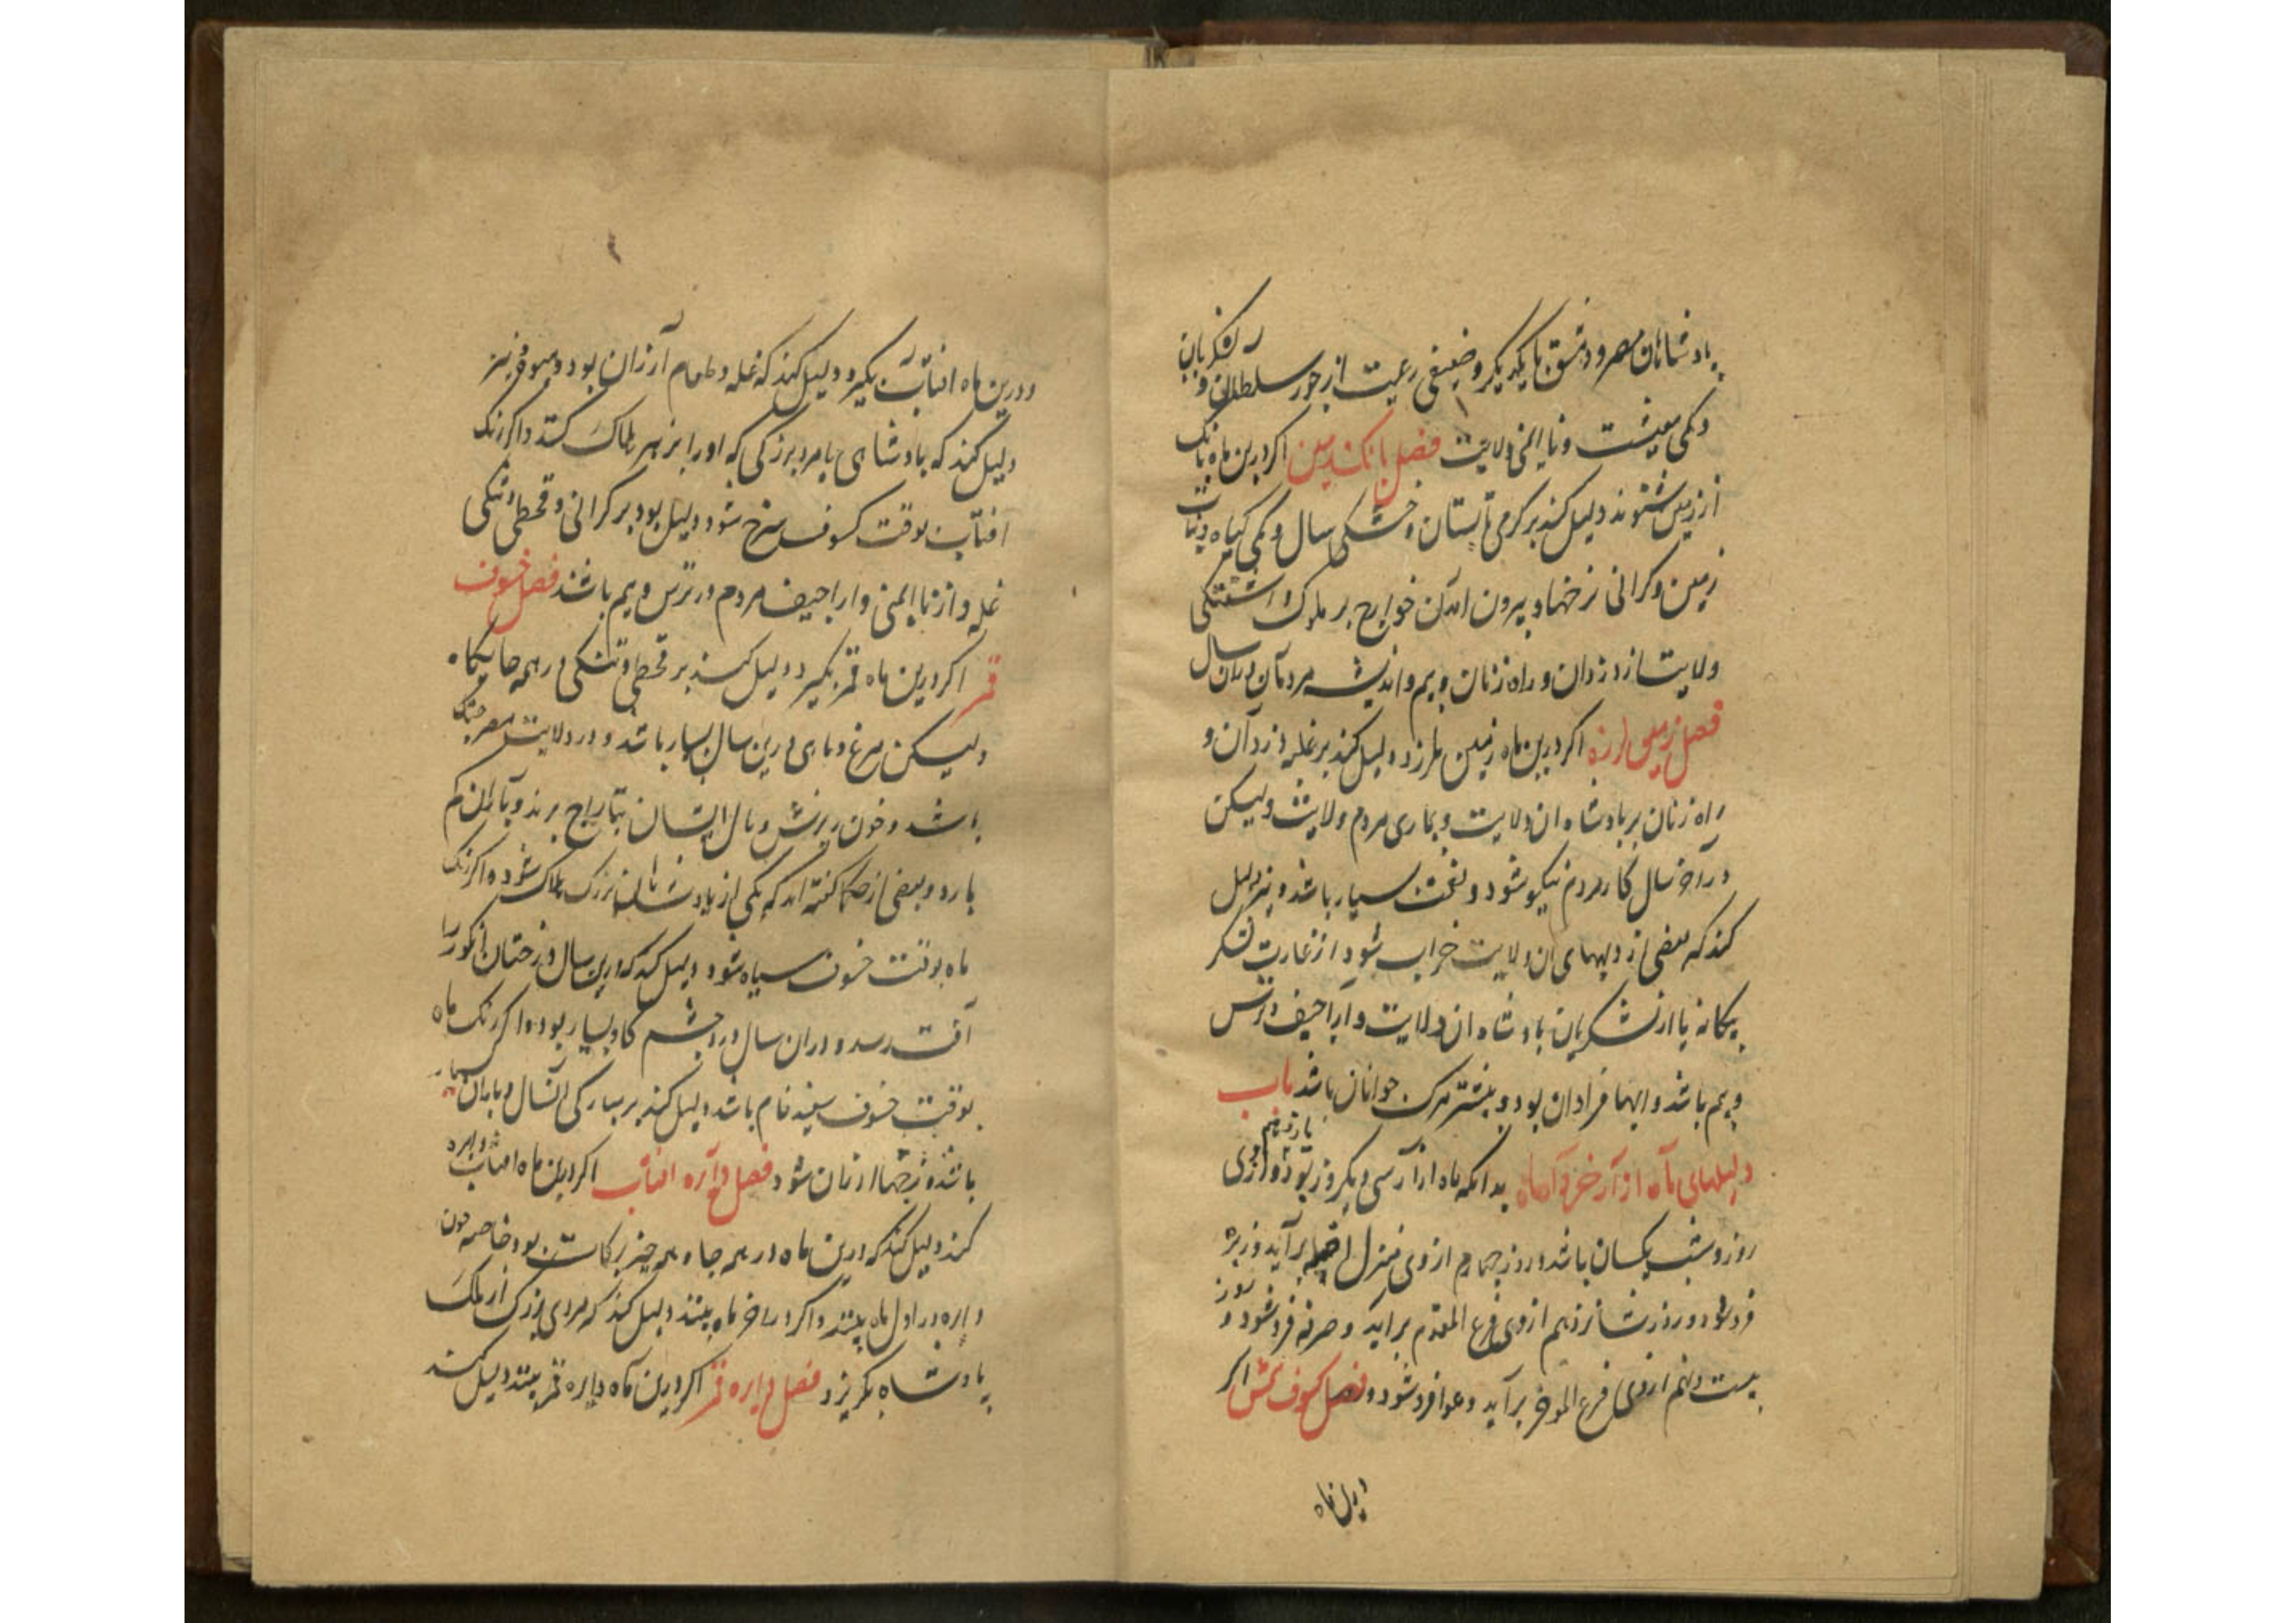 پادشاهان مصر و دمشق با یکدیگر و ضعیفی رعیت از جور سلطانان و لشکریان
و کمی معیشت و ناایمنی ولایت فصل بانک زمین اکر درین ماه بانک
از زمین شنوند دلیل کند بر کرمی تابستان و خشکی سال و کمی کیاه و نبات
زمین و کرانی نرخها و بیرون آمدن خوارج بر ملوک و آشفتکی
ولایت از دزدان و راه زنان و بیم و اندیشه مردمان دران سال
فصل زمین لرزه اکر درین ماه زمین بلرزد دلیل کند بر غلبه دزدان و
راه زنان بر پادشاه ان ولایت و بیماری مردم ولایت ولیکن
در آخر سال کار مردم نیکو شود و نعمت بسیار باشد و نیز دلیل
کند که بعضی از دیههای ان ولایت خراب شود از غارت لشکر
بیکانه یا از لشکریان پادشاه ان ولایت و اراجیف و ترس
و بیم باشد و ابها فراوان بود و بیشتر مرک جوانان باشد باب
دلیلهای ماه اذار بدانکه ماه اذار سی و یکروز بود و
روز و شب یکسان باشد و روز چهارم از وی منزل اخبیه برآید و زبره
فرو شود و روز شانزدهم از وی فرغ المقدم براید و صرفه فرو شود و روز
بیست و نهم از وی فرغ الموخر برآید و عوا فرو شود و فصل کسوف شمس اکر
و درین ماه افتاب بکیرد دلیل کند که غله و طعام آرزان بود و میوه نیز
دلیل کند که پادشاهی یا مرد بزرکی که او را بزهر هلاک کنند و اکر رنک
افتاب بوقت کسوف سرخ شود دلیل بود بر کرانی و قحطی و تنکی
غله و از ناایمنی و اراجیف مردم در ترس و بیم باشند فصل خسوف
قمر اکر درین ماه قمر بکیرد دلیل کند بر قحطی و تنکی در همه جایکاه
ولیکن مرغ و ماهی درین سال بسیار باشد و در ولایت مصر جنک
باشد و خون ریزش و مال ایشان بتاراج برند و باران کم
بارد و بعضی از حکما کفته اند که یکی از پادشاهان بزرک هلاک شود و اکر رنک
ماه بوقت خسوف سیاه شود دلیل کند که درین سال درختان انکور را
آفت رسد و دران سال درد چشم کاو بسیار بود و اکر رنک ماه
بوقت خسوف سفید فام باشد دلیل کند بر مبارکی آنسال و باران بسیار
باشد و نرخها ارزان شود فصل دآره افتاب اکر درین ماه افتاب دایره
کند دلیل کند که درین ماه در همه جا و همه چیز برکات بود خاصه چون
دایره در اول ماه بینند و اکر در اخر ماه بینند دلیل کند که مردی بزرک از ملک
پادشاه بکریزد فصل دایره قمر اکر درین ماه دایره قمر بینند دلیل کند